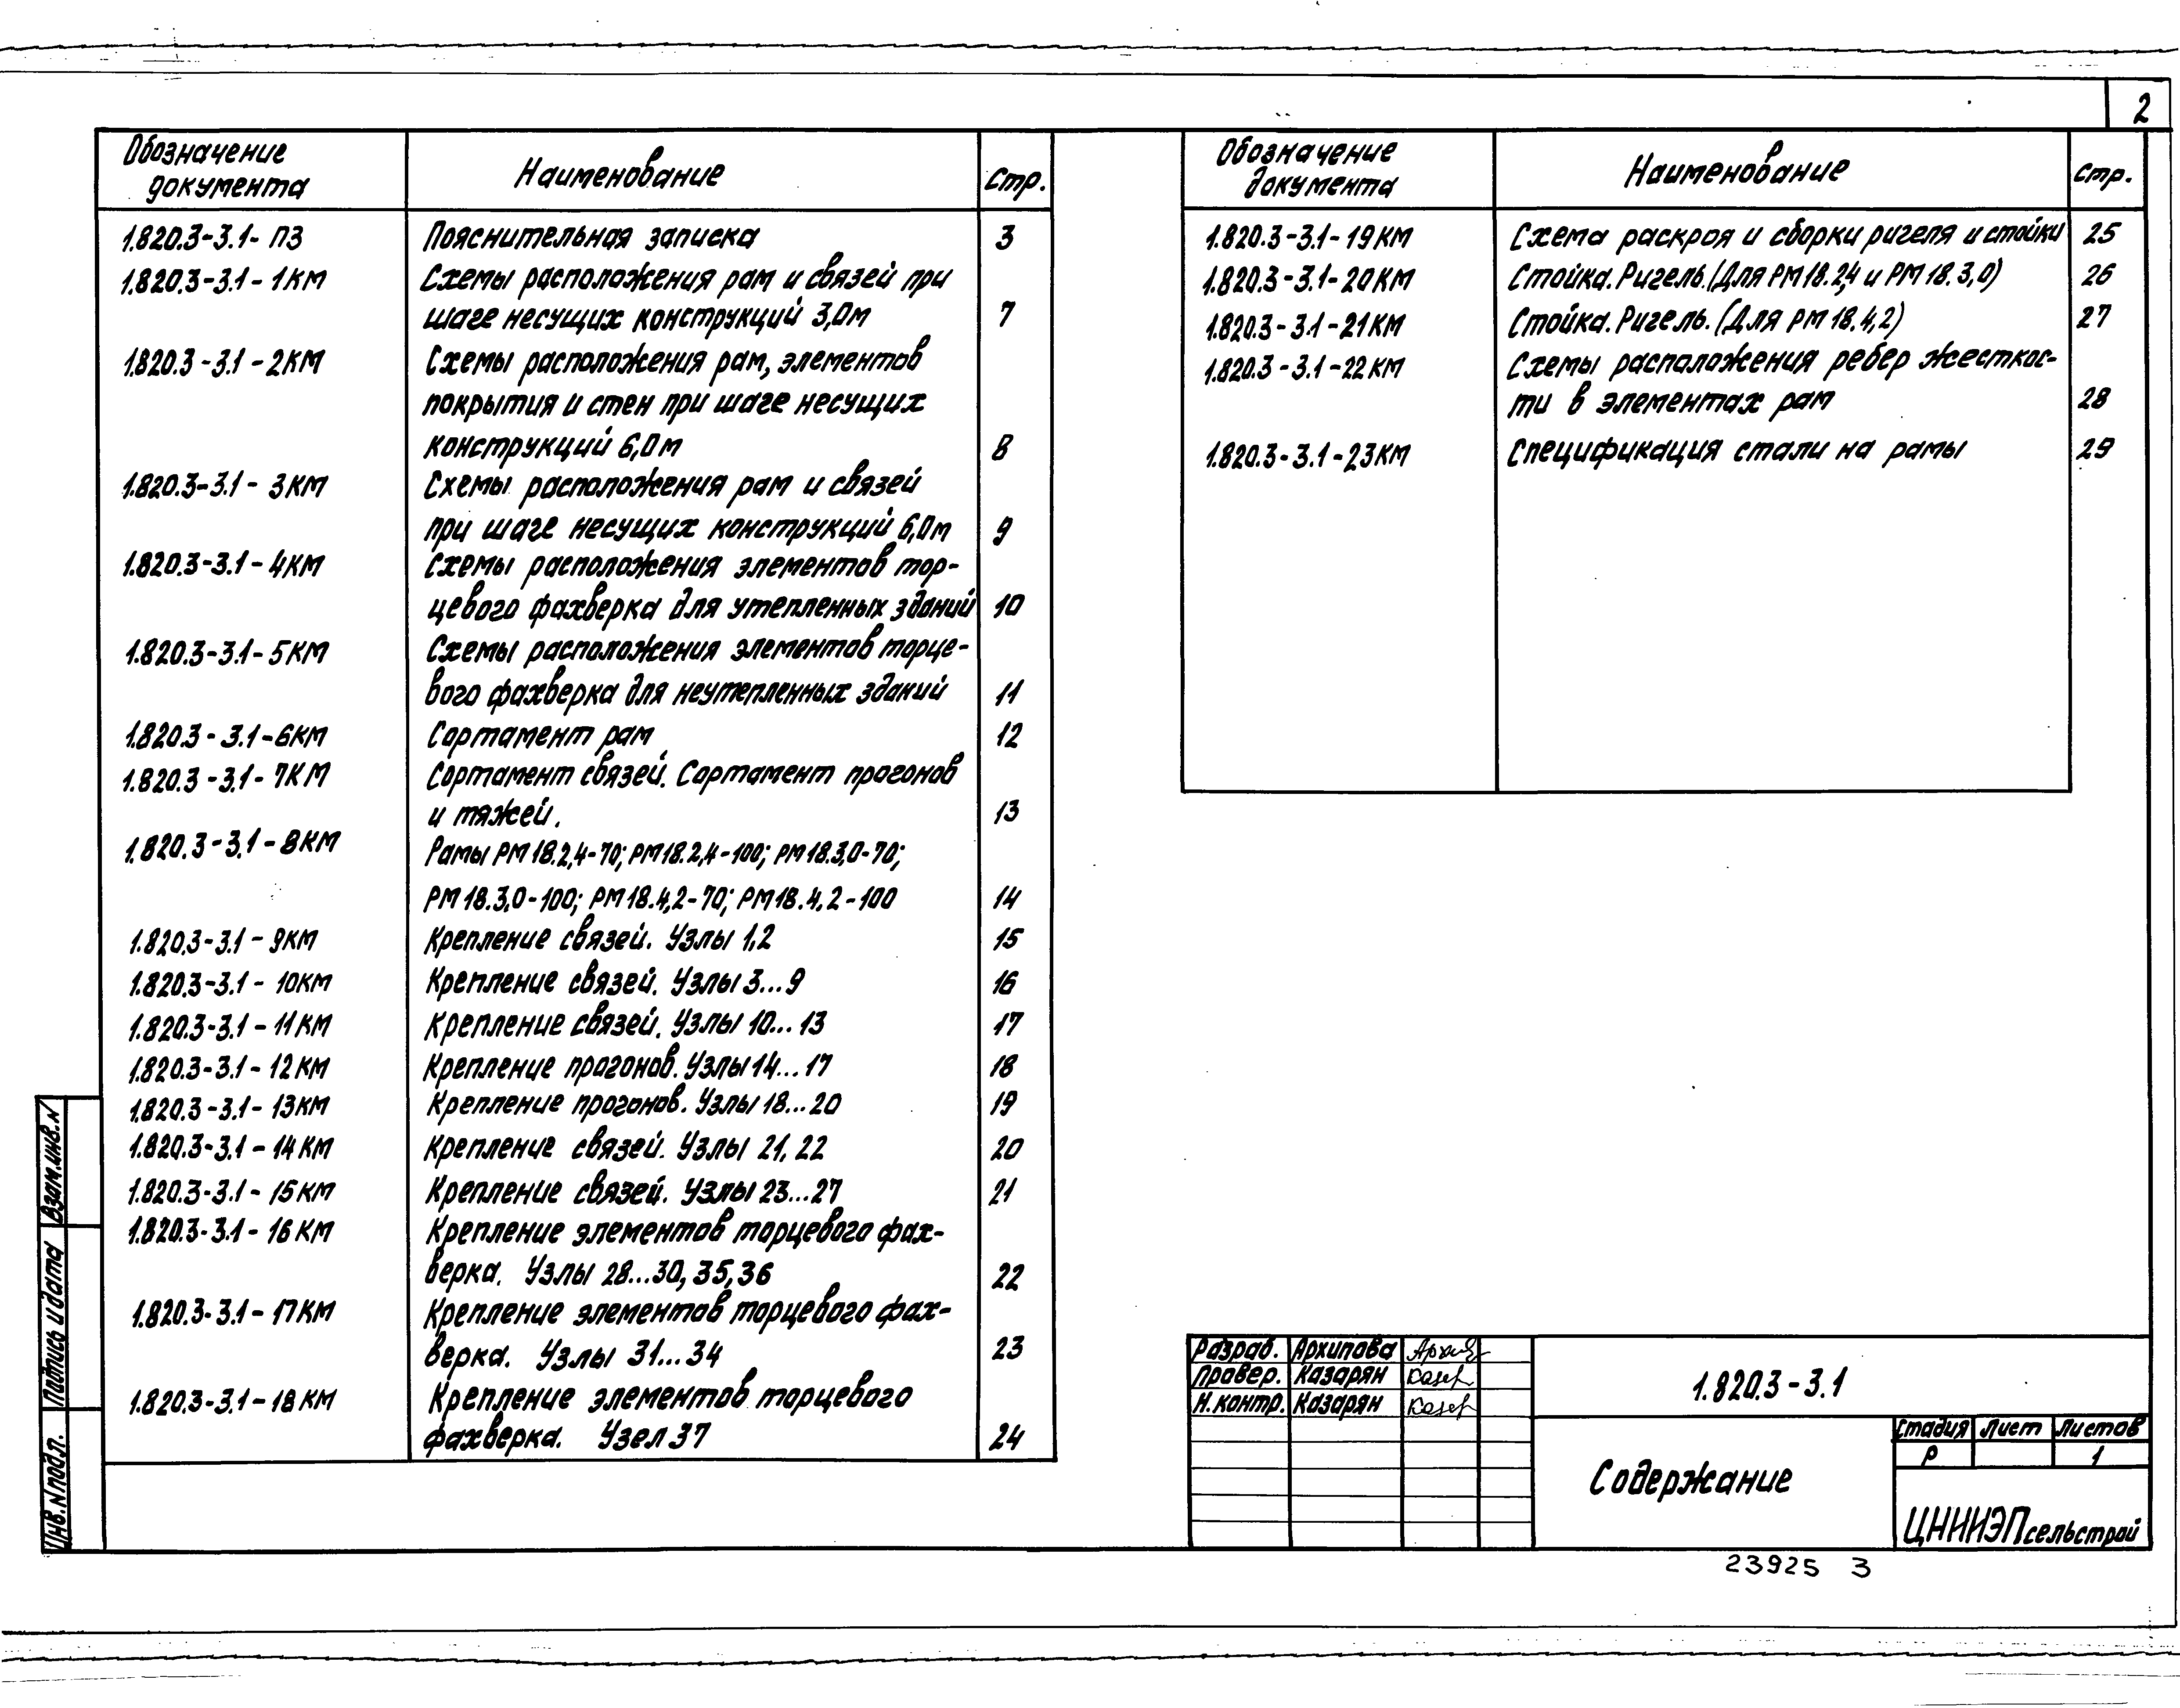 2
Обозначение документа Наименование Стр.
1.820.3-3.1-ПЗ Пояснительная записка 3
1.820.3-3.1-1КМ Схемы расположения рам и связей при
шаге несущих конструкций 3,0м 7
1.820.3-3.1-2КМ Схемы расположения рам, элементов
покрытия и стен при шаге несущих
конструкций 6,0м 8
1.820.3-3.1-3КМ Схемы расположения рам и связей
при шаге несущих конструкций 6,0м 9
1.820.3-3.1-4КМ Схемы расположения элементов тор-
цевого фахверка для утепленных зданий 10
1.820.3-3.1-5КМ Схемы расположения элементов торце-
вого фахверка для неутепленных зданий 11
1.820.3-3.1-6КМ Сортамент рам 12
1.820.3-3.1-7КМ Сортамент связей. Сортамент прогонов
и тяжей. 13
1.820.3-3.1-8КМ Рамы РМ18.2,4-70; РМ18.2,4-100; РМ18.3,0-70;
РМ18.3,0-100; РМ18.4,2-70; РМ18.4.2-100 14
1.820.3-3.1-9КМ Крепление связей. Узлы 1,2 15
1.820.3-3.1-10КМ Крепление связей. Узлы 3...9 16
1.820.3-3.1-11КМ Крепление связей. Узлы 10...13 17
1.820.3-3.1-12КМ Крепление прогонов. Узлы 14...17 18
1.820.3-3.1-13КМ Крепление прогонов. Узлы 18...20 19
1.820.3-3.1-14КМ Крепление связей. Узлы 21, 22 20
1.820.3-3.1-15КМ Крепление связей. Узлы 23...27 21
1.820.3-3.1-16КМ Крепление элементов торцевого фах-
верка. Узлы 28...30, 35, 36 22
1.820.3-3.1-17КМ Крепление элементов торцевого фах-
верка. Узлы 31...34 23
1.820.3-3.1-18КМ Крепление элементов торцевого
фахверка. Узел 37 24
Обозначение документа Наименование Стр.
1.820.3-3.1-19КМ Схема раскроя и сборки ригеля и стойки 25
1.820.3-3.1-20КМ Стойка. Ригель. (Для РМ18.2,4 и РМ18.3,0) 26
1.820.3-3.1-21КМ Стойка. Ригель. (Для РМ18.4,2) 27
1.820.3-3.1-22КМ Схемы расположения ребер жесткос-
ти в элементах рам 28
1.820.3-3.1-23КМ Спецификация стали на рамы 29
Взам.инв.N
Подпись и дата
Инв.N подл.
Разраб. Архипова Архип
Провер. Казарян Казар
Н.контр. Казарян Казар
1.820.3-3.1
Содержание
Стадия Лист Листов
Р 1
ЦНИИЭПсельстрой
23925 3